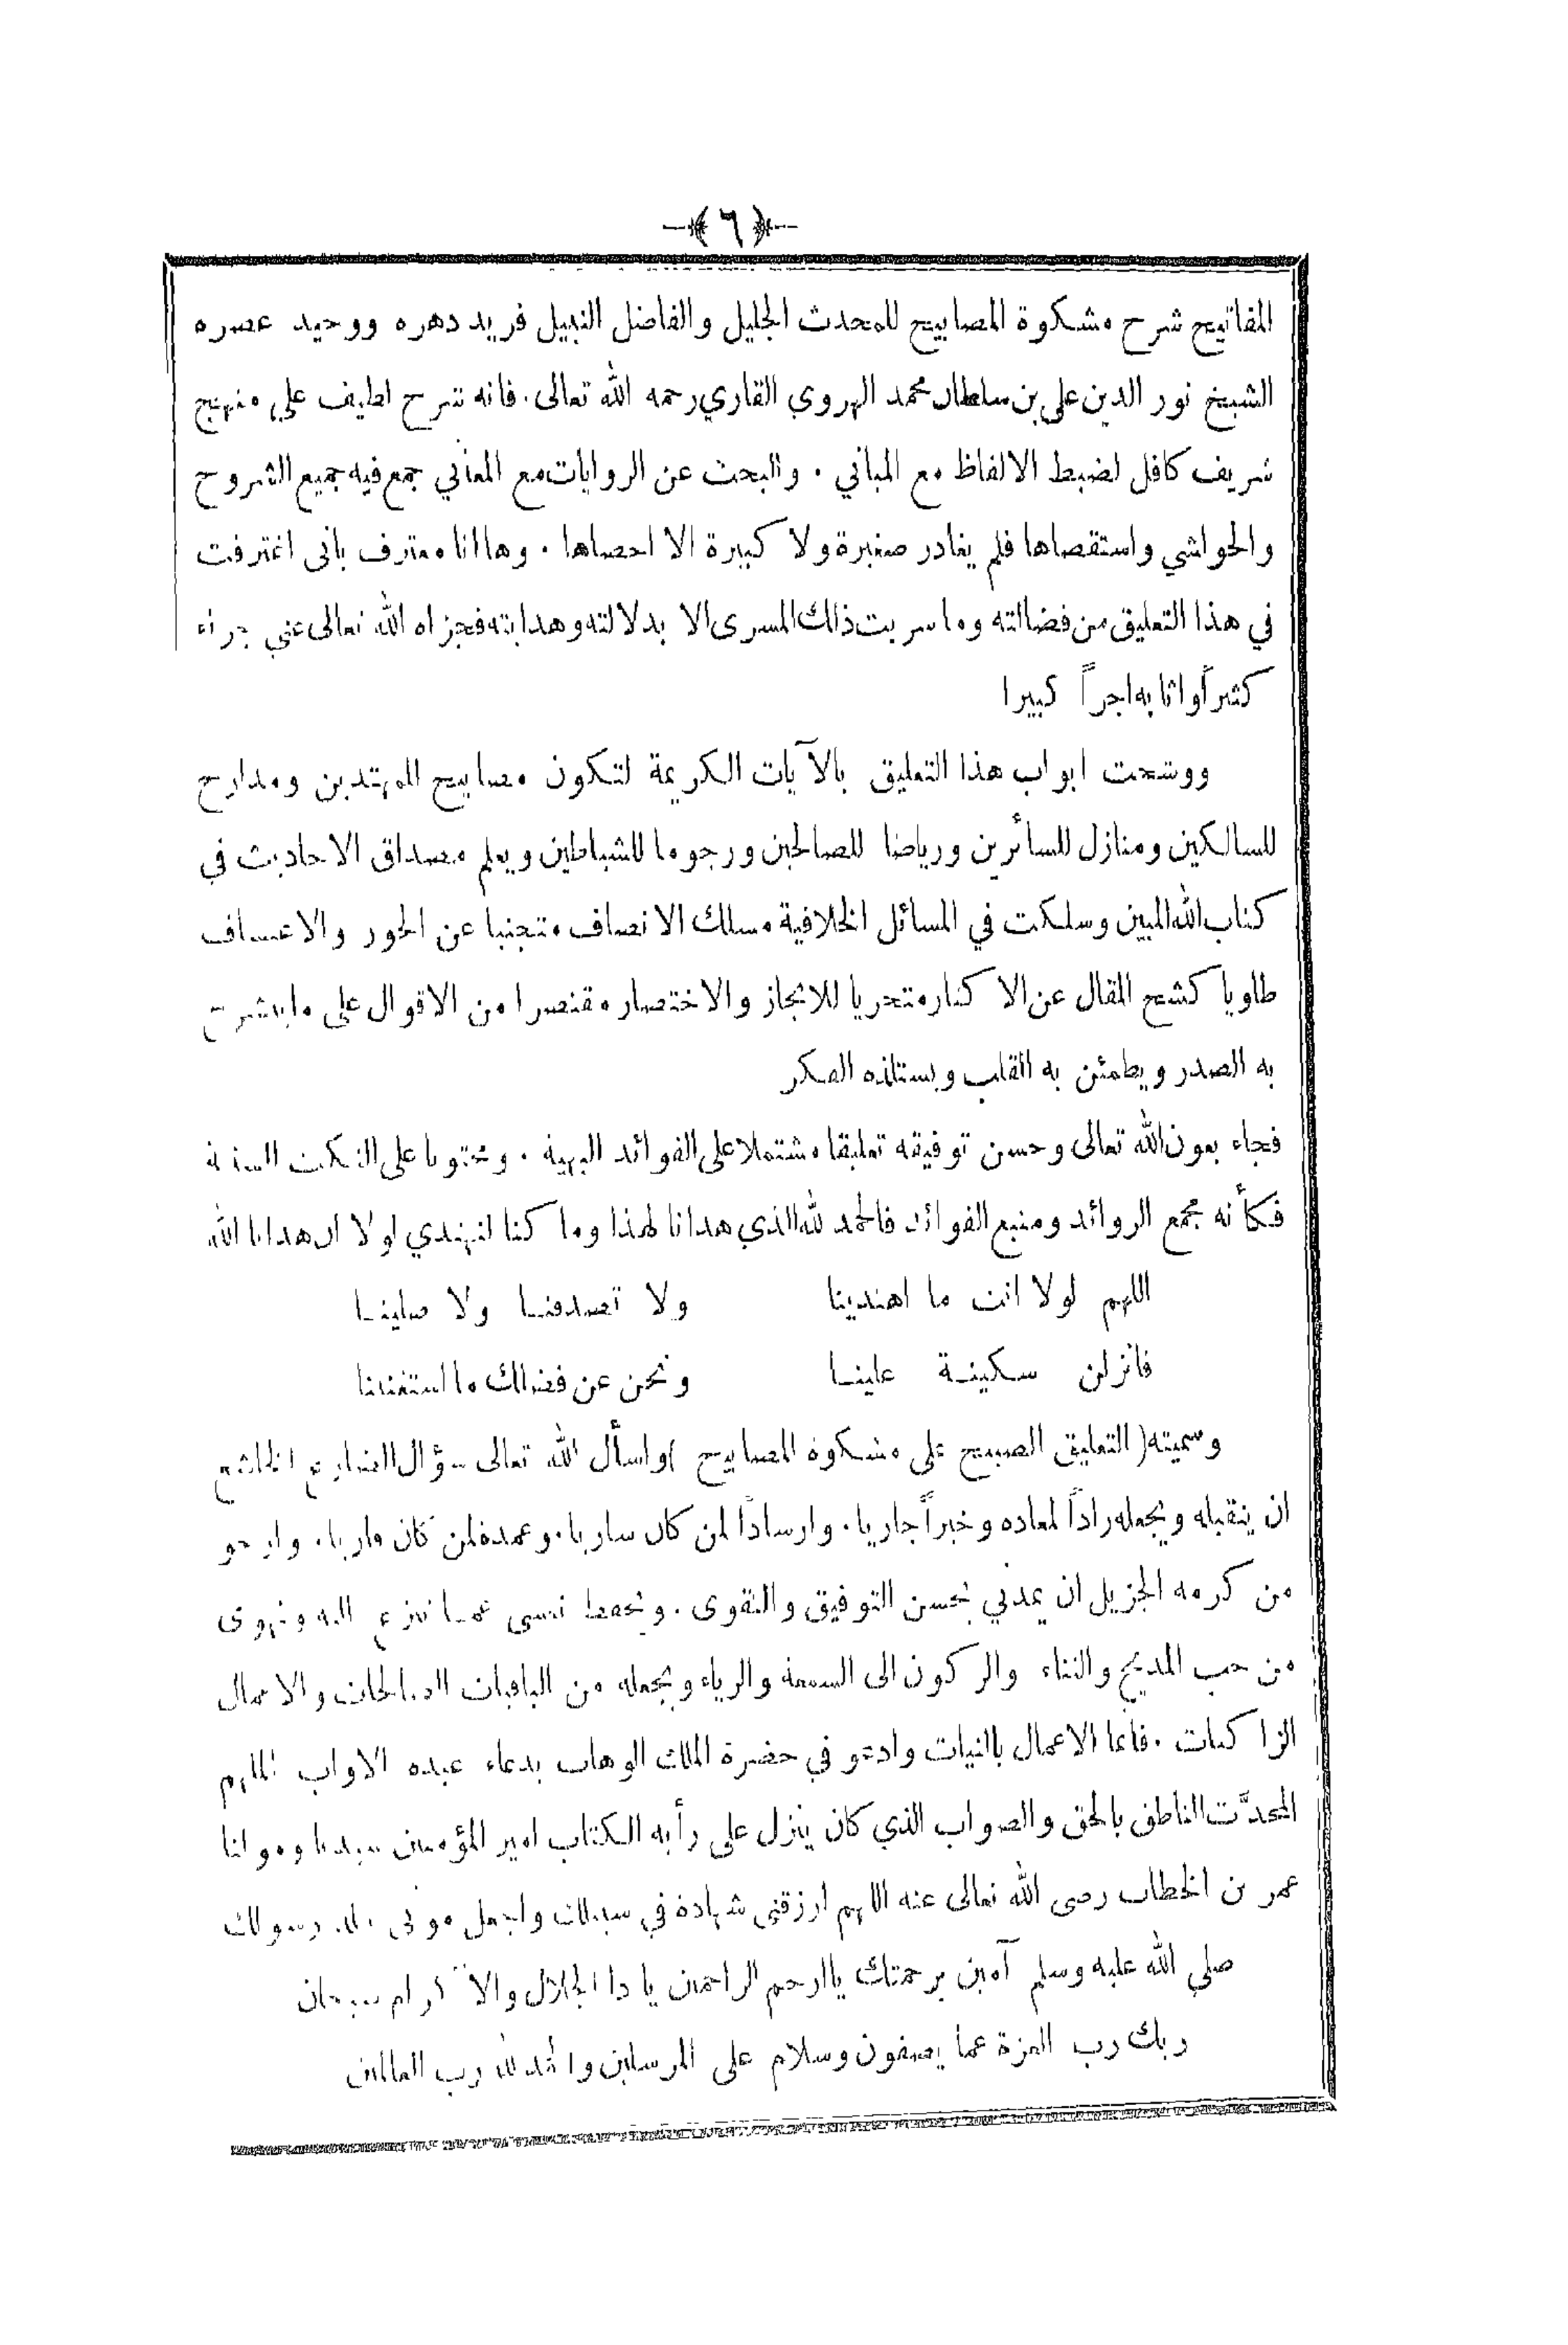 ٦
المفاتيح شرح مشكوة المصابيح للمحدث الجليل والفاضل النبيل فريد دهره ووحيد عصره
الشيخ نور الدين علي بن سلطان محمد الهروي القاري رحمه الله تعالى . فانه شرح لطيف على منهج
شريف كافل لضبط الالفاظ مع المباني . والبحث عن الروايات مع المعاني جمع فيه جميع الشروح
والحواشي واستقصاها فلم يغادر صغيرة ولا كبيرة الا احصاها . وها انا معترف باني اغترفت
في هذا التعليق من فضالته وما سريت ذلك المسرى الا بدلالته وهدايته فجزاه الله تعالى عني
كثيراً واثابه اجراً كبيرا
ووشحت ابواب هذا التعليق بالآيات الكريمة لتكون مصابيح للمهتدين ومدارج
للسالكين ومنازل للسأرين ورياضا للصالحين ورجوما للشياطين ويعلم مصداق الاحاديث في
كتاب الله المبين وسلكت في المسائل الخلافية مسلك الانصاف متجنبا عن الجور والاعتساف
طاويا كشح المقال عن الاكثار متحريا للايجاز والاختصار مقتصرا من الاقوال على ما ينشرح
به الصدر ويطمئن به القلب ويستلذه الفكر
فجاء بعون الله تعالى وحسن توفيقه تعليقا مشتملا على الفوائد البهية . ومحتويا على النكت السنية
فكأنه مجمع الزوائد ومنبع الفوائد فالحمد لله الذي هدانا لهذا وما كنا لنهتدي لولا ان هدانا الله
اللهم لولا انت ما اهتدينا ولا تصدقنا ولا صلينا
فانزلن سكينة علينا ونحن عن فضلك ما استغنينا
وسميته ( التعليق الصبيح على مشكوة المصابيح ) واسأل الله تعالى سؤال الضارع الخاشع
ان يتقبله ويجعله زاداً لمعاده وخيراً جاريا . وارشاداً لمن كان ساريا . وعمدة لمن كان قاريا . وارجو
من كرمه الجزيل ان يمدني بحسن التوفيق والتقوى . ويحفظ نفسي عما تنزع اليه وتهوى
من حب المديح والثناء والركون الى السمعة والرياء ويجعله من الباقيات الصالحات والاعمال
الزاكيات . فانما الاعمال بالنيات وادعو في حضرة الملك الوهاب بدعاء عبده الاواب الملهم
المحدَّث الناطق بالحق والصواب الذي كان ينزل على رأيه الكتاب امير المؤمنين سيدنا ومولانا
عمر بن الخطاب رضى الله تعالى عنه اللهم ارزقني شهادة في سبيلك واجعل موتي ببلد رسولك
صلى الله عليه وسلم آمين برحمتك يا ارحم الراحمين يا ذا الجلال والاكرام سبحان
ربك رب العزة عما يصفون وسلام على المرسلين والحمد لله رب العالمين